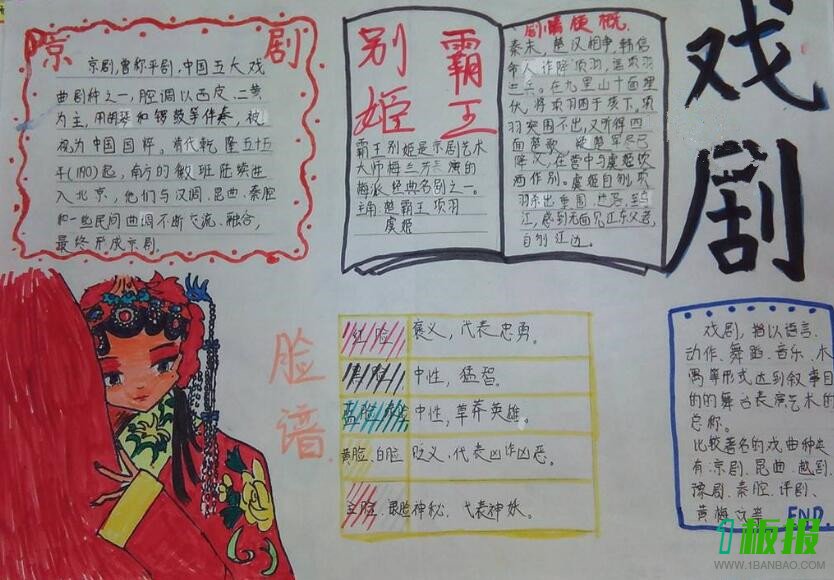 京剧
京剧,曾称平剧,中国五大戏
曲剧种之一,腔调以西皮、二黄
为主,用胡琴和锣鼓等伴奏,被
视为中国国粹。清代乾隆五十五
年(1790)起,南方的徽班陆续进
入北京,他们与汉调、昆曲、秦腔
和一些民间曲调不断交流、融合,
最终形成京剧。
霸王
别姬
霸王别姬是京剧艺术
大师梅兰芳表演的
梅派经典名剧之一。
主角:楚霸王项羽
虞姬
剧情梗概
秦末,楚汉相争,韩信
命人诈降项羽,诓项羽
进兵。在九里山十面埋
伏,将项羽困于垓下。项
羽突围不出,又听得四
面楚歌,疑楚军尽已
降汉,在营中与虞姬饮
酒作别。虞姬自刎,项
羽杀出重围,迷路,至乌
江,感到无面见江东父老,
自刎江边。
戏剧
脸谱
红脸 褒义,代表忠勇。
黑脸 中性,猛智。
蓝脸 中性,草莽英雄。
黄脸、白脸 贬义,代表凶诈凶恶。
金脸、银脸 神秘,代表神妖。
戏剧,指以语言、
动作、舞蹈、音乐、木
偶等形式达到叙事目
的的舞台表演艺术的
总称。
比较著名的戏曲种类
有:京剧、昆曲、越剧、
豫剧、秦腔、评剧、
黄梅戏等 END.
1板报
WWW.1BANBAO.COM